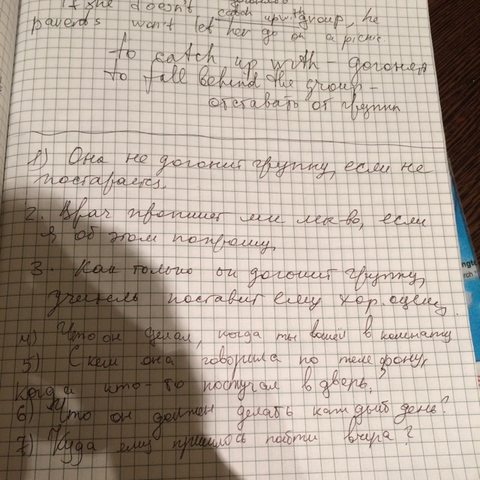 If she doesn't catch up with group, he
parents won't let her go on a picnic
to catch up with - догонят
to fall behind the group -
отставать от группы
1) Она не догонит группу, если не
постарается.
2. Врач пропишет мне лек-во, если
я об этом попрошу.
3. Как только он догонит группу,
учитель поставит ему хор. оценку
4) Что он делал, когда ты вошёл в комнату
5) С кем она говорила по телефону,
когда кто-то постучал в дверь?
6) Что он должен делать каждый день?
7) Куда ему пришлось пойти вчера?